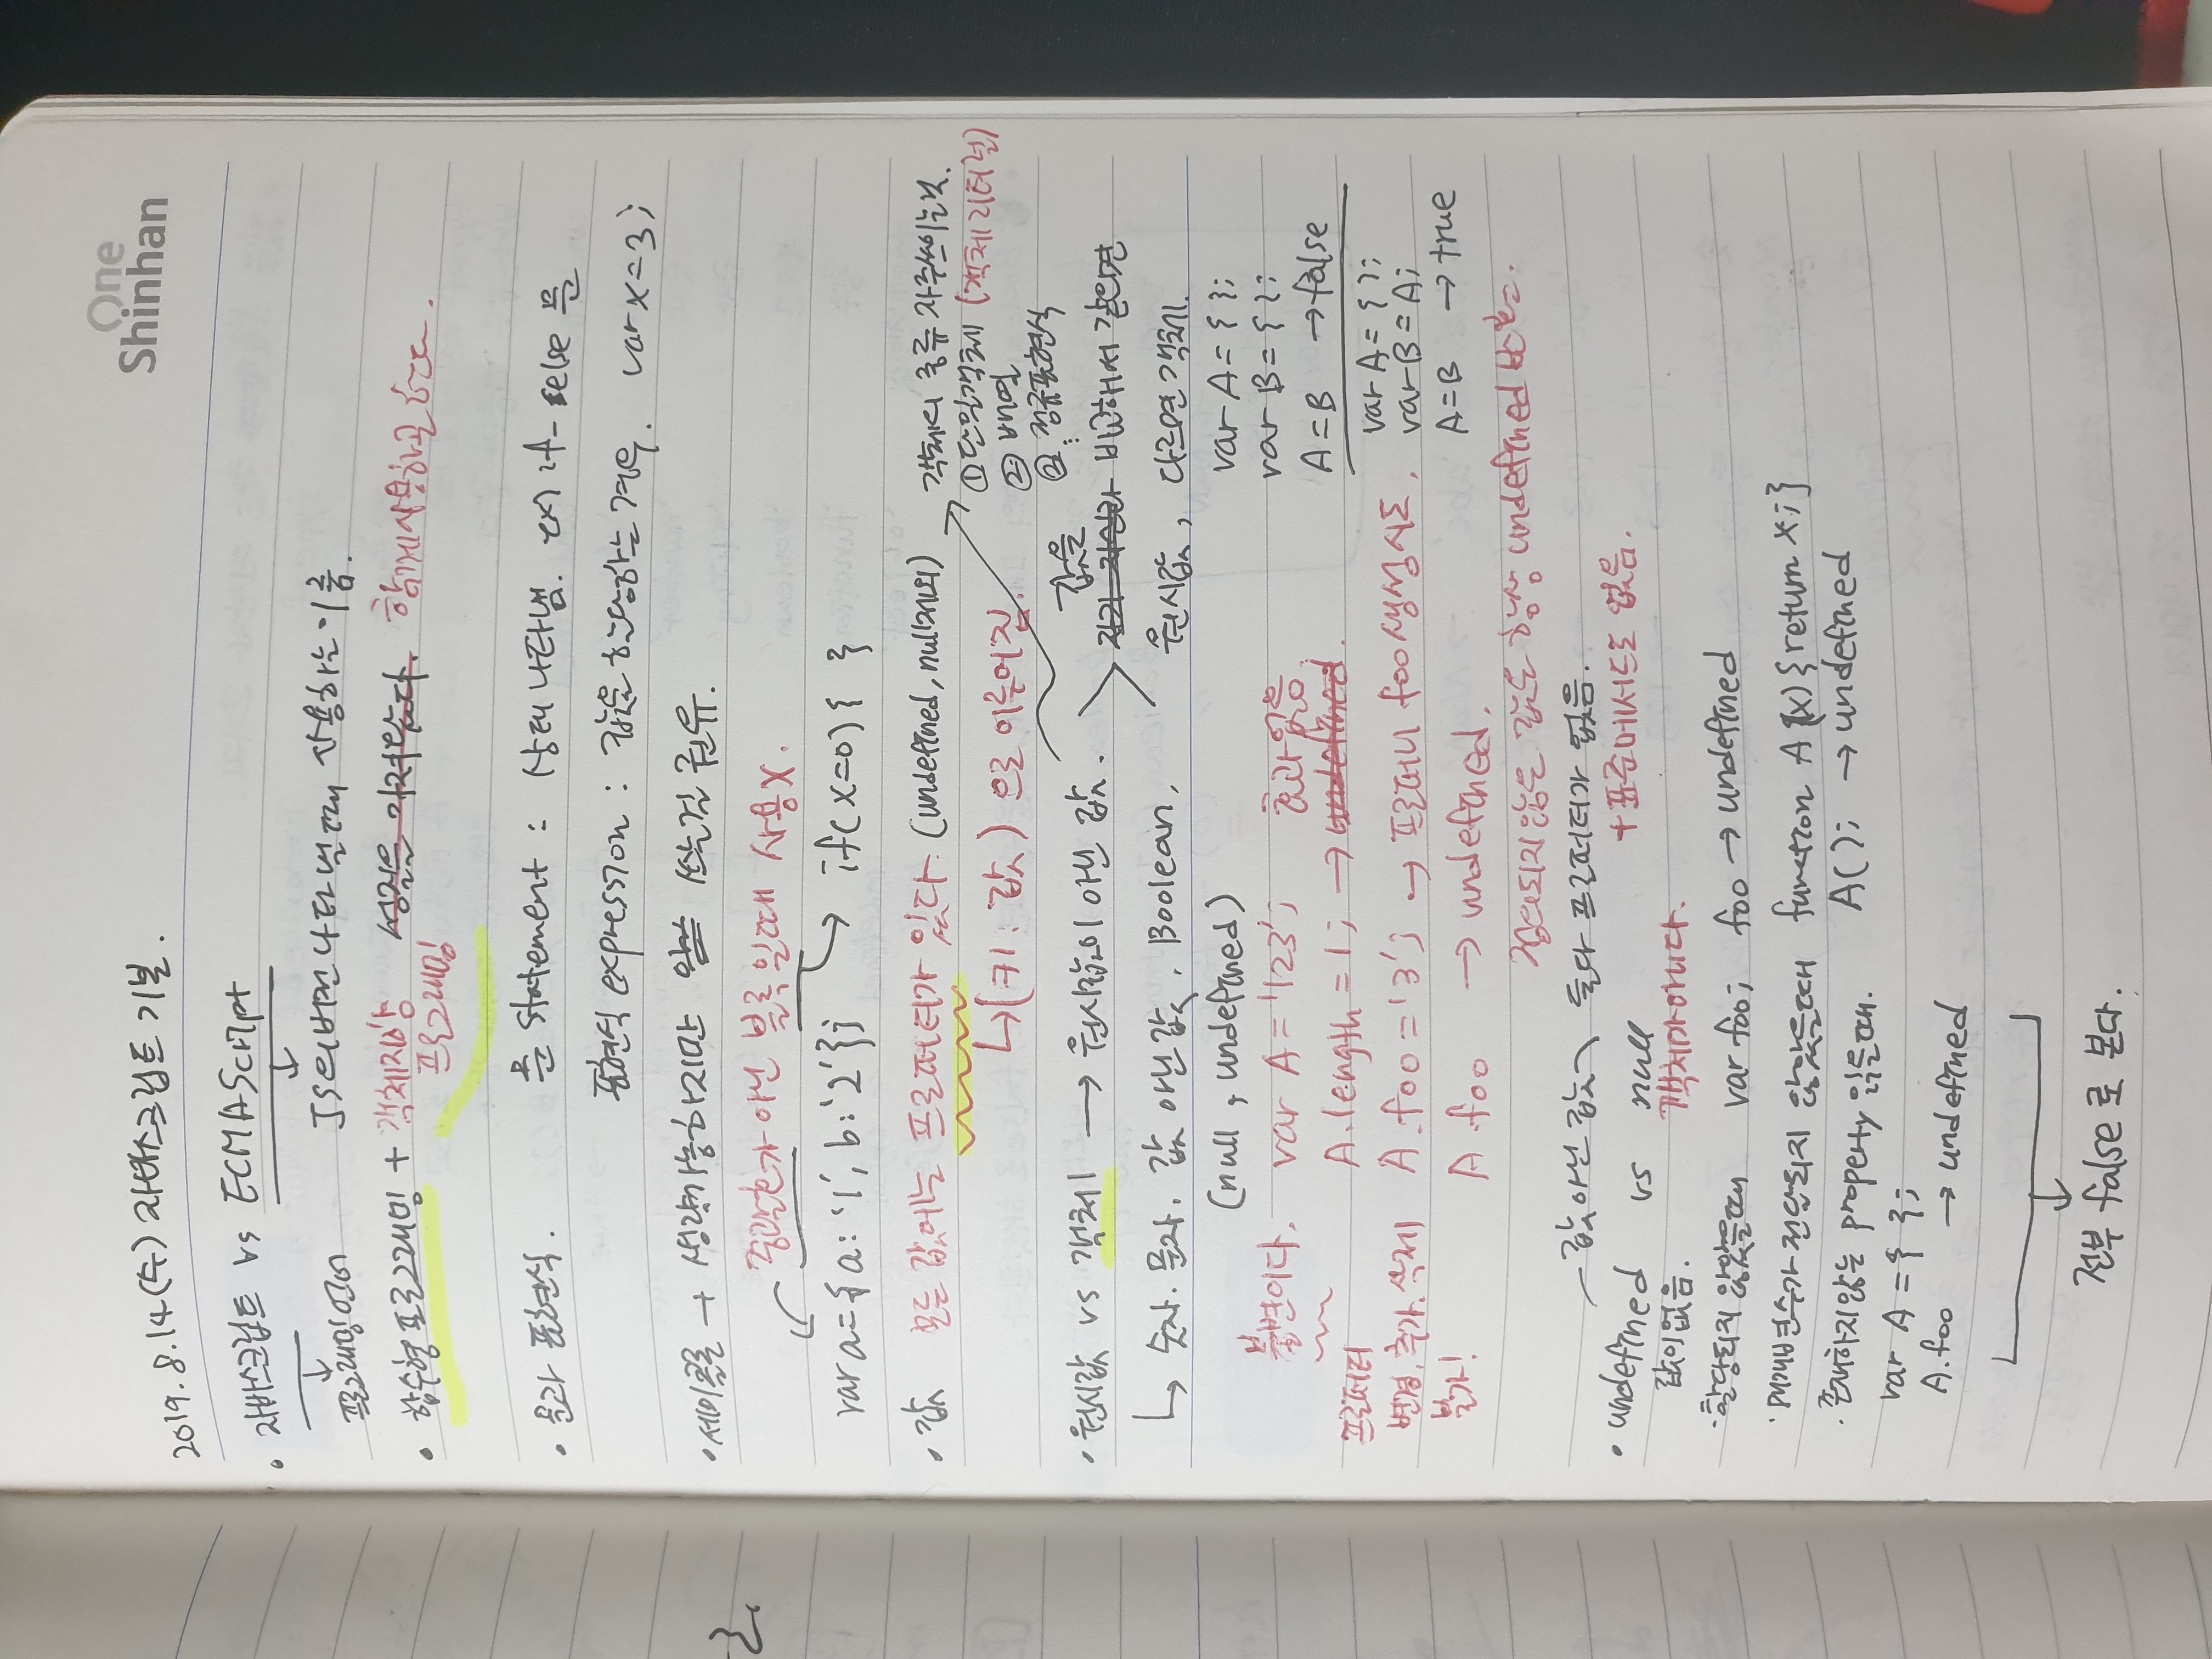 One
Shinhan
2019.8.14(수) 자바스크립트 기본.
• 자바스크립트 vs ECMAScript
↓ ↓
프로그래밍 언어 JS의 버전 나타낼때 사용하는 이름.
• 함수형 프로그래밍 + 객체지향 성질을 가져왔다. 함께 사용하곤 한다.
프로그래밍
• 문과 표현식. 문 statement : 상태 나타냄. ex) if-else 문
표현식 expression : 값을 할당하는 경우. var x=3;
• 세미콜론 → 생략가능하지만 쓰는걸 권유.
중괄호가 아닌 블록일때 사용X.
var a={a: '1', b:'2'}; if(x=0){ }
• 값 모든 값에는 프로퍼터가 있다. (undefined, null제외)
↳(키 : 값) 으로 이루어짐.
객체의 종류 자주쓰이는것.
① 단일객체 (객체 리터럴)
② 배열
③ 정규표현식
⋮
• 원시값 vs 객체 → 원시값이 아닌 값.
↳ 숫자. 문자. 값 아닌 값. Boolean.
(null, undefined)
값을
비교해서 같으면
원시값, 다르면 객체.
var A = { };
var B = { };
A=B → false
var A = { };
var B = A;
A=B → true
불변이다. var A = '123'; 효과없음.
A.length = 1; → undefined.
프로퍼터
변경, 추가, 삭제 A.foo = '3'; → 프로퍼티 foo 생성 시도.
불가! A.foo → undefined.
정의되지 않은 값은 항상 undefined 반환.
값 아닌 값 둘다 프로퍼터가 없음.
• undefined vs null + 표준메서드도 없음.
값이 없음. 객체가 아니다.
· 할당되지 않았을때 var foo; foo → undefined
· 매개변수가 전달되지 않았을때 function A(x){return x;}
· 존재하지 않는 property 읽을때. A(); → undefined
var A = { };
A.foo → undefined
↓
전부 false로 본다.